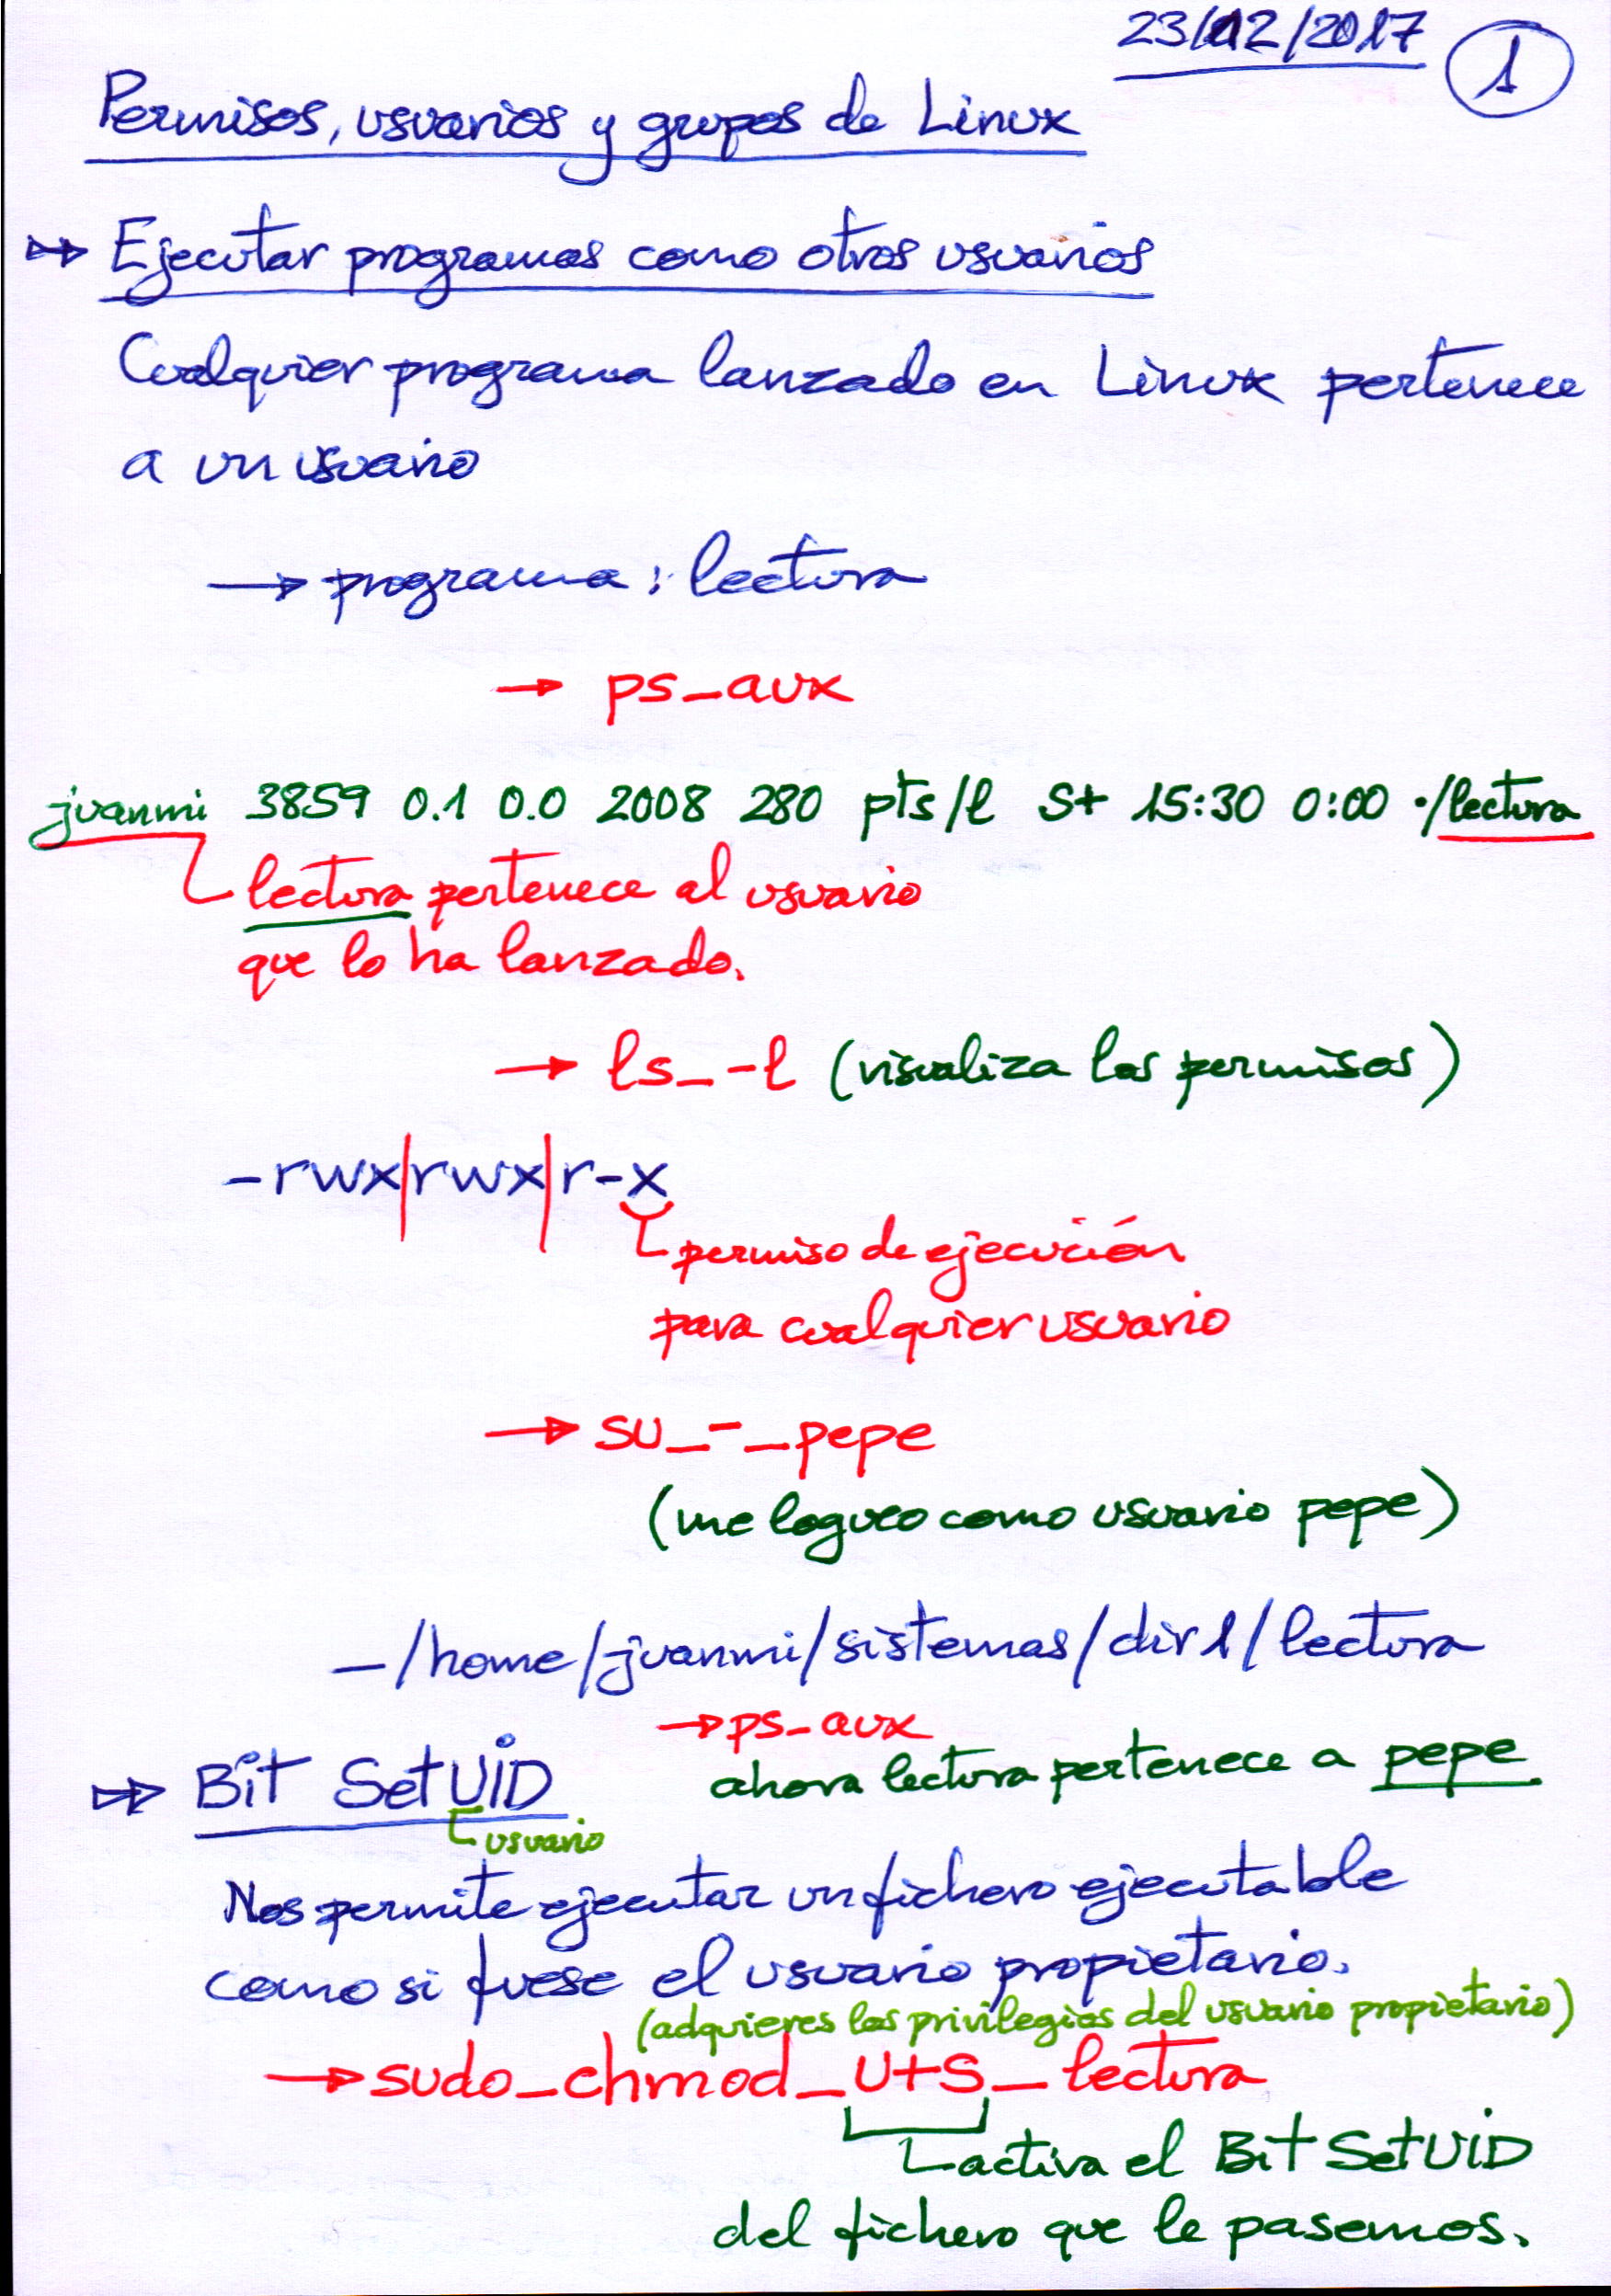 23/12/2017
1
Permisos, usuarios y grupos de Linux
Ejecutar programas como otros usuarios
Cualquier programa lanzado en Linux pertenece
a un usuario
→ programa: lectura
→ ps_aux
juanmi 3859 0.1 0.0 2008 280 pts/1 S+ 15:30 0:00 ./lectura
lectura pertenece al usuario
que lo ha lanzado.
→ ls_-l (visualiza los permisos)
-rwx|rwx|r-x
permiso de ejecución
para cualquier usuario
→ su_-_pepe
(me logueo como usuario pepe)
-/home/juanmi/sistemas/dir1/lectura
→ ps_aux
ahora lectura pertenece a pepe
Bit SetUID
usuario
Nos permite ejecutar un fichero ejecutable
como si fuese el usuario propietario.
(adquieres los privilegios del usuario propietario)
→ sudo_chmod_u+s_lectura
activa el Bit SetUID
del fichero que le pasemos.